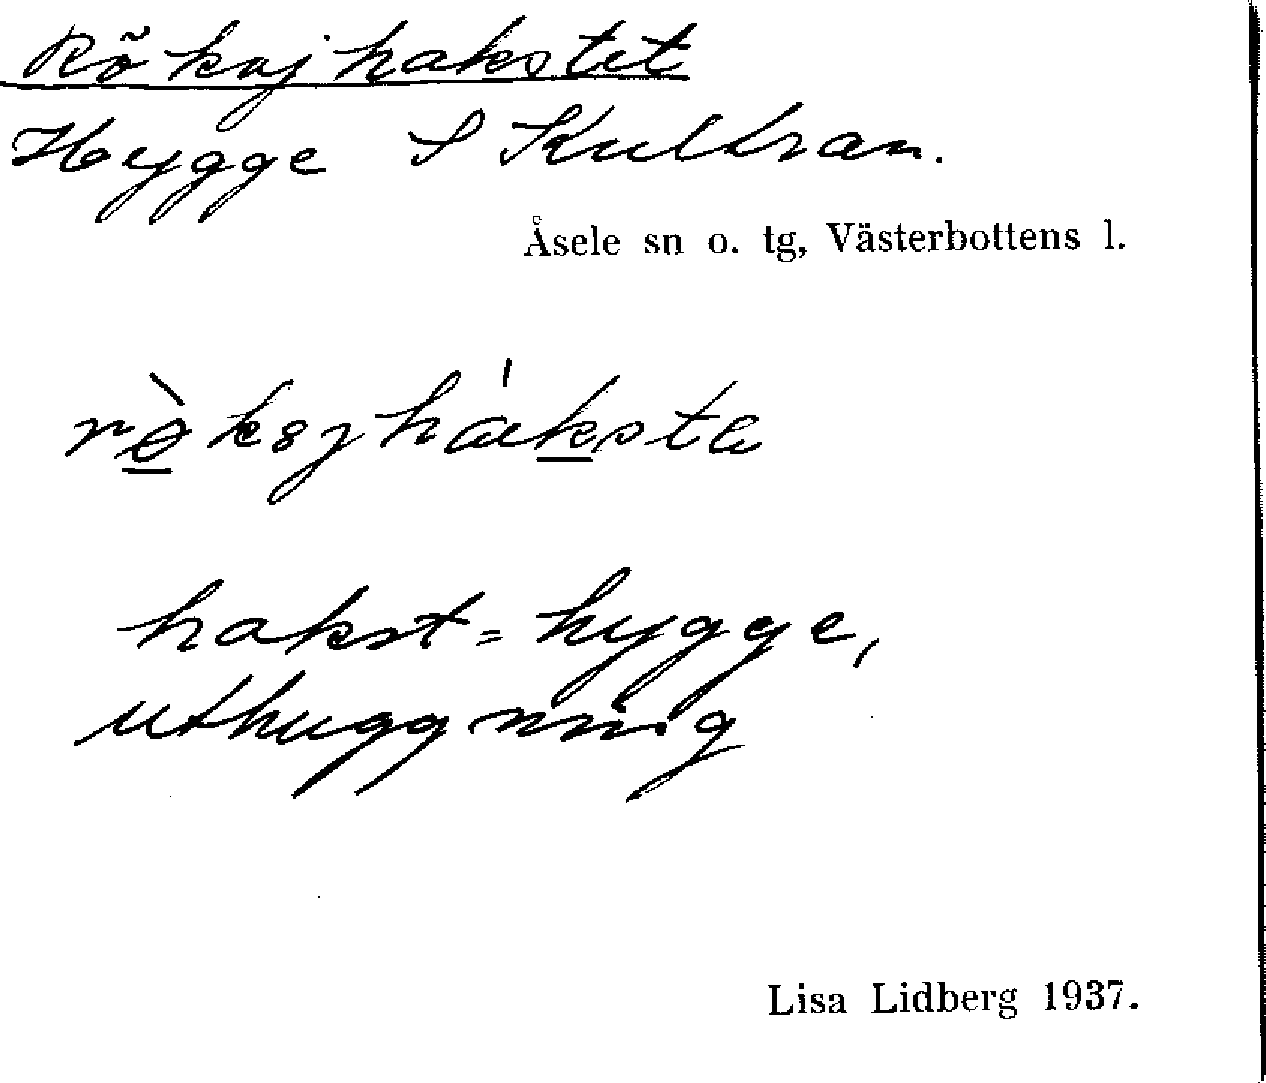 Rökojhakstet
Hygge S Kulltran.
Åsele sn o. tg, Västerbottens l.
rø̀kəȷhák̲sta
hakst = hygge,
uthuggning
Lisa Lidberg 1937.